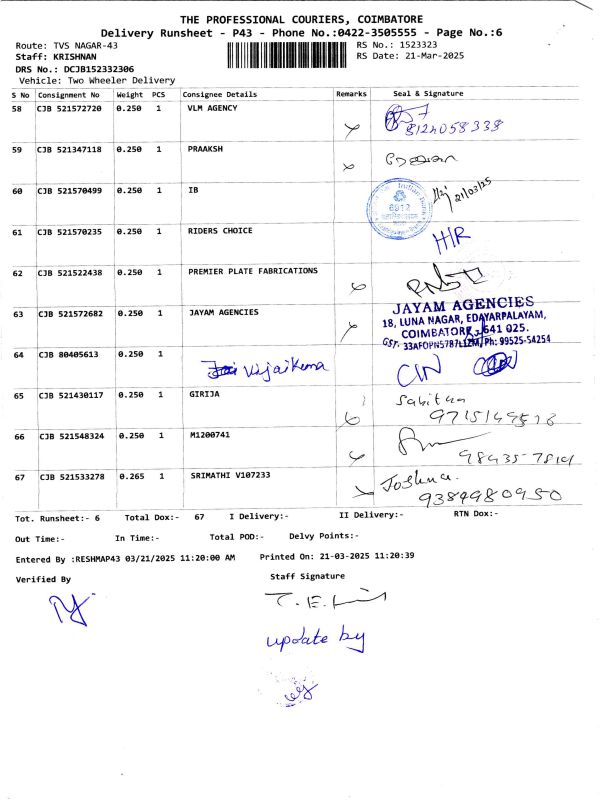 THE PROFESSIONAL COURIERS, COIMBATORE
Delivery Runsheet - P43 - Phone No.:0422-3505555 - Page No.:6
Route: TVS NAGAR-43 RS No.: 1523323
Staff: KRISHNAN RS Date: 21-Mar-2025
DRS No.: DCJB152332306
Vehicle: Two Wheeler Delivery
S No Consignment No Weight PCS Consignee Details Remarks Seal & Signature
58 CJB 521572720 0.250 1 VLM AGENCY
8124058338
59 CJB 521347118 0.250 1 PRAAKSH
60 CJB 521570499 0.250 1 IB 21/03/25
61 CJB 521570235 0.250 1 RIDERS CHOICE
62 CJB 521522438 0.250 1 PREMIER PLATE FABRICATIONS
63 CJB 521572682 0.250 1 JAYAM AGENCIES
JAYAM AGENCIES
18, LUNA NAGAR, EDAYARPALAYAM,
COIMBATORE - 641 025.
GST. 33AFOPN5787L1ZM, Ph: 99525-54254
64 CJB 80405613 0.250 1
Vijai Kema
65 CJB 521430117 0.250 1 GIRIJA Sabitha
66 CJB 521548324 0.250 1 M1200741
67 CJB 521533278 0.265 1 SRIMATHI V107233 Joshna.
9384980950
Tot. Runsheet:- 6 Total Dox:- 67 I Delivery:- II Delivery:- RTN Dox:-
Out Time:- In Time:- Total POD:- Delvy Points:-
Entered By :RESHMAP43 03/21/2025 11:20:00 AM Printed On: 21-03-2025 11:20:39
Verified By Staff Signature
update by